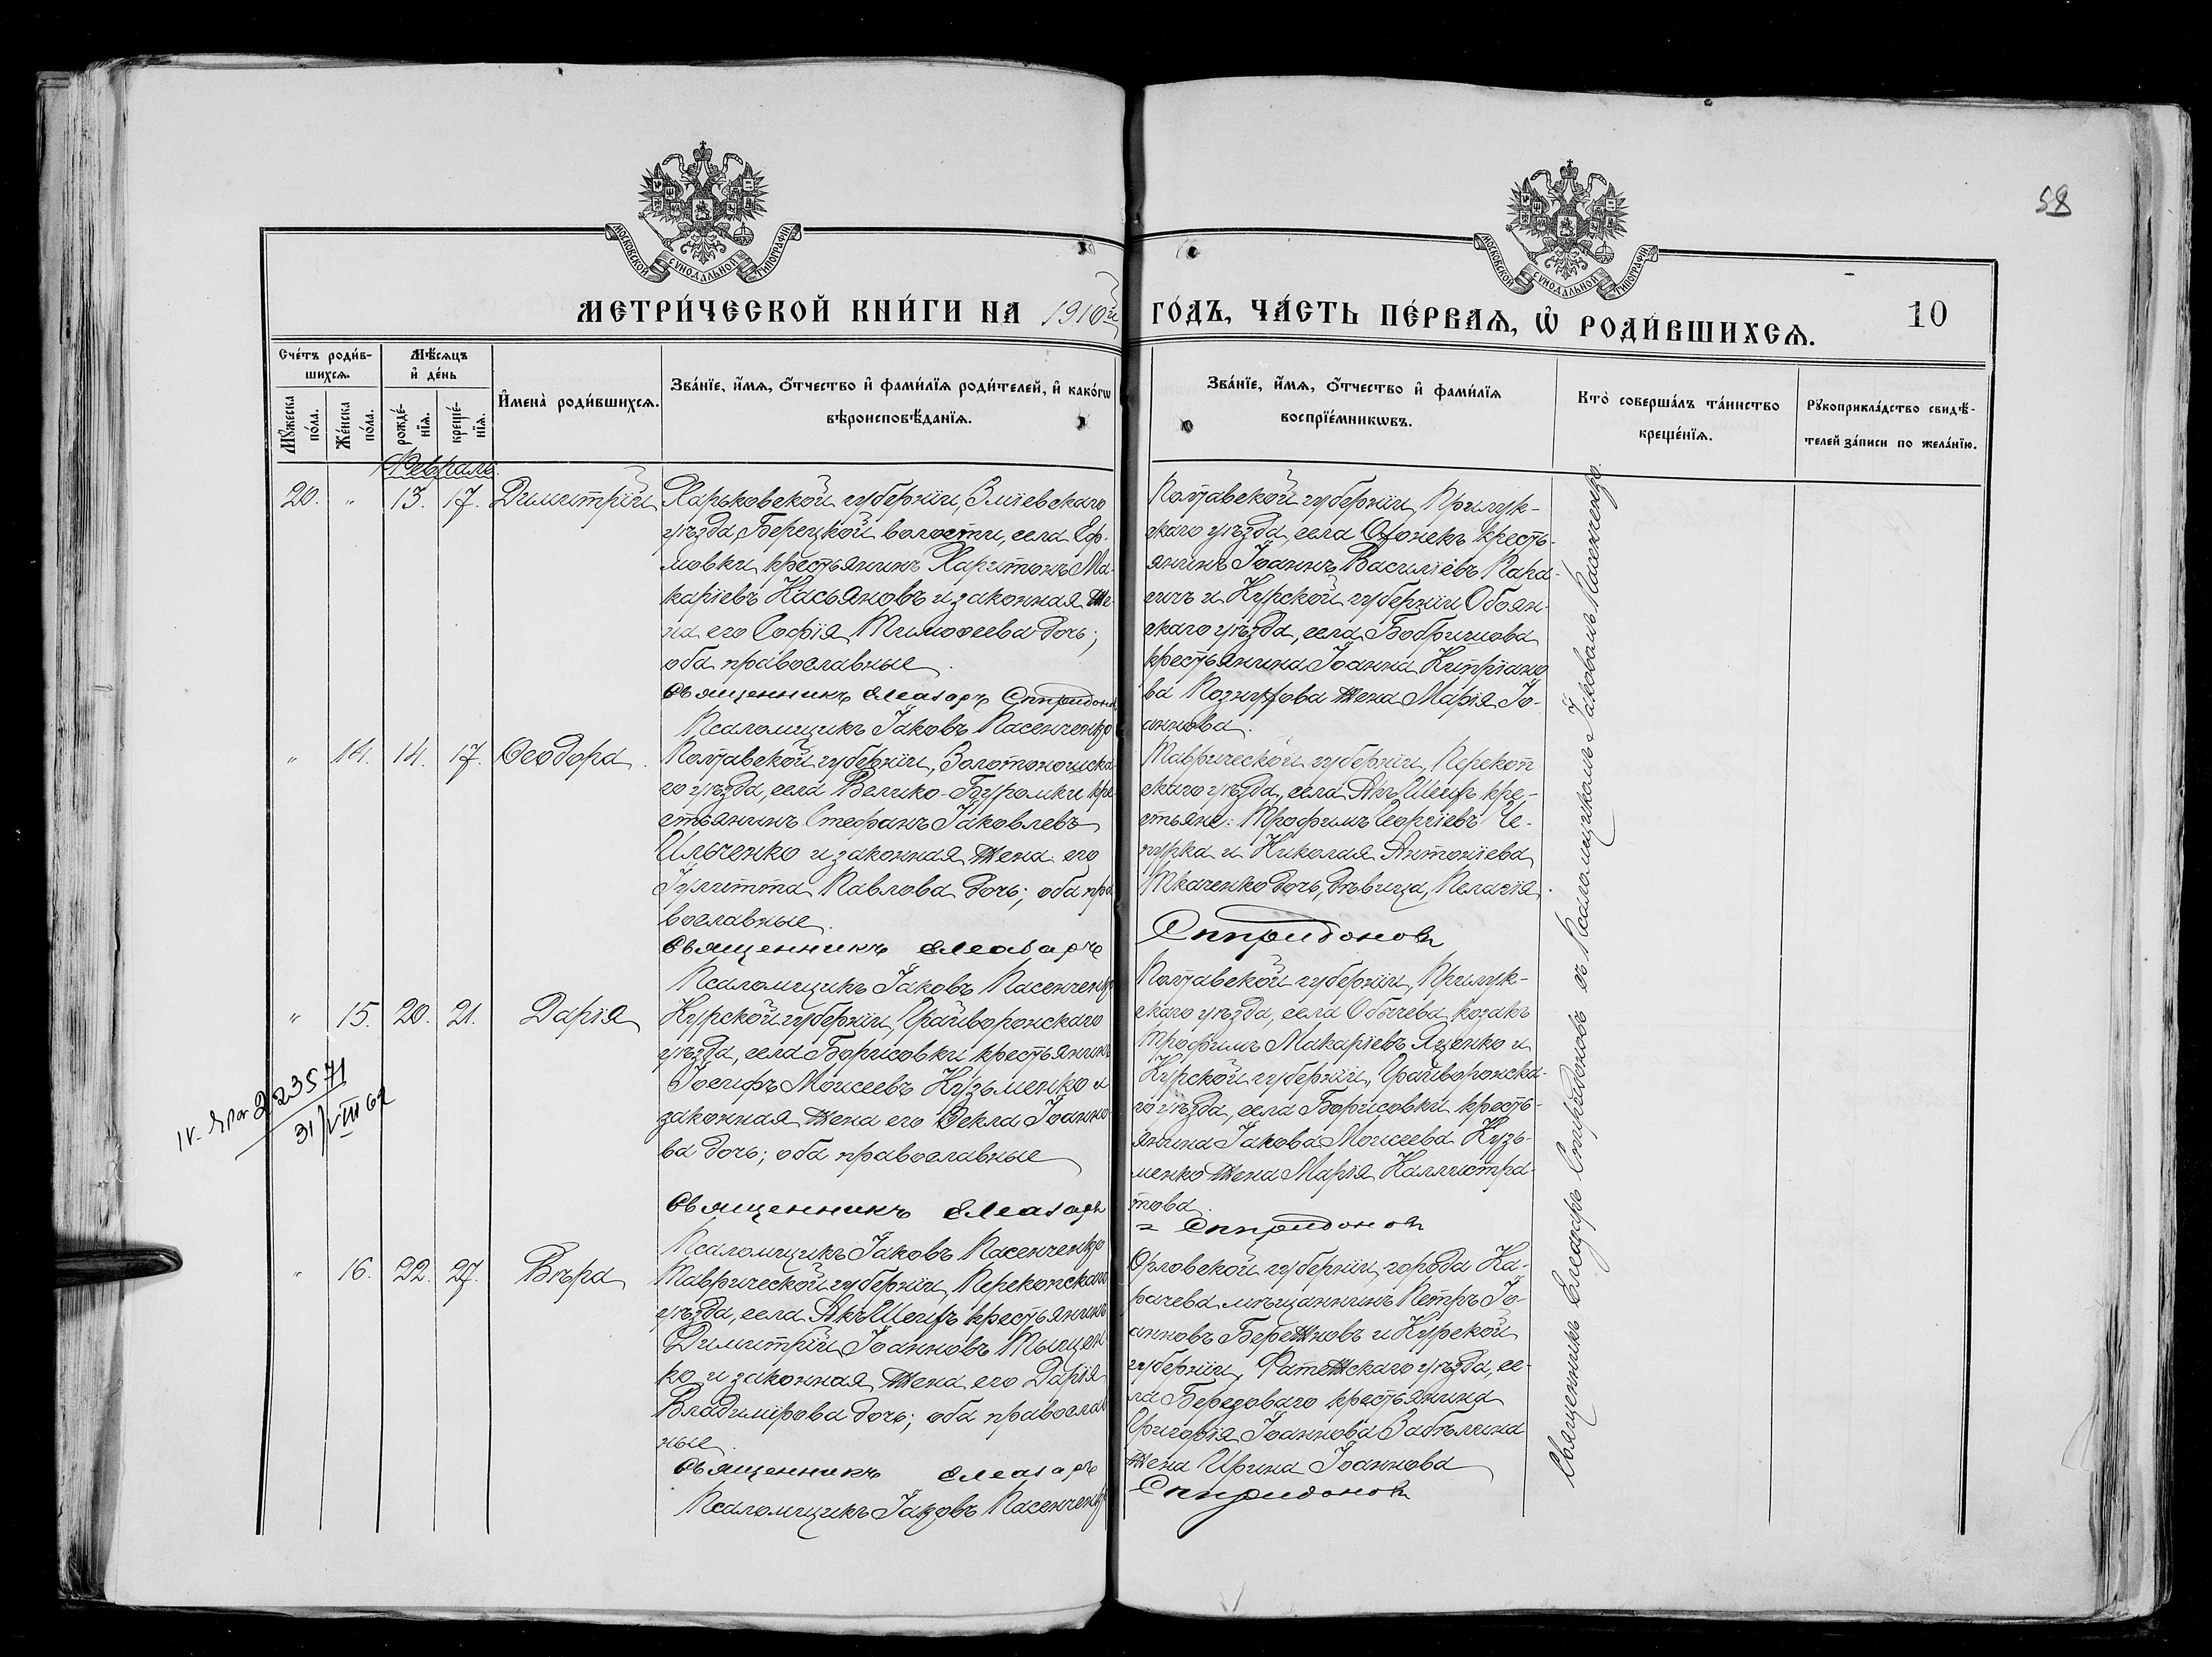 58
МОСКОВСКОЙ СѴНОДАЛЬНОЙ ТИПОГРАФІИ
МОСКОВСКОЙ СѴНОДАЛЬНОЙ ТИПОГРАФІИ
МЕТРИ́ЧЕСКОЙ КНИ́ГИ НА 1916й ГО́ДЪ, ЧА́СТЬ ПЕ́РВАѦ, Ѡ҆ РОДИ́ВШИХСѦ.
10
Сче́тъ роди́в-
шихсѧ.
Мꙋ́жеска по́ла.
Же́нска по́ла.
Мѣ́сѧцъ
и҆ де́нь
рожде́-нїѧ.
креще́-нїѧ.
И҆мена̀ роди́вшихсѧ.
Зва́нїе, и҆́мѧ, ѻ҆́тчество и҆ фами́лїѧ роди́телей, и҆ како́гѡ
вѣроисповѣ́данїѧ.
Зва́нїе, и҆́мѧ, ѻ҆́тчество и҆ фами́лїѧ
воспрїе́мникѡвъ.
Кто̀ соверша́лъ та́инство
креще́нїѧ.
Рꙋкоприкла́дство свидѣ́-
телей за́писи по жела́нїю.
Февраль.
20. " 13. 17. Димитрій
Харьковской губерніи, Зміевскаго
уѣзда, Берецкой волости, села Еф-
мовки крестьянинъ Харитонъ Ма-
каріевъ Касьяновъ и законная же-
на его Софія Тимофеева дочь;
оба православные.
Священникъ Елеазаръ Спиридонов
Псаломщикъ Іаковъ Пасенченко
Полтавской губерніи, Прилук-
скаго уѣзда, села крестъ-
янинъ Іоаннъ Василіевъ Кара-
сичъ и Курской губерніи Обоян-
скаго уѣзда, села Бобришова
крестьянина Іоанна Кипріано-
ва жена Марія Іо-
аннова.
" 14. 14. 17. Ѳеодора.
Полтавской губерніи, Золотоношска-
го уѣзда, села Велико-Буромки кре-
стьянинъ Стефанъ Іаковлевъ
Ильченко и законная жена его
Іулитта Павлова дочь; оба пра-
вославные.
Священникъ Елеазаръ
Псаломщикъ Іаковъ Пасенченко
Таврической губерніи, Перекоп-
скаго уѣзда, села Акъ Шеихъ кре-
стьяне: Трофимъ Георгіевъ Че-
пурка и Николая Антоніева
Ткаченко дочь, дѣвица, Пелагія.
Спиридоновъ
" 15. 20. 21. Дарія
Курской губерніи, Грайворонскаго
уѣзда, села Борисовки крестьянинъ
Іосифъ Моисеевъ Кузьменко и
законная жена его Ѳекла Іоанно-
ва дочь; оба православные
Священникъ Елеазаръ
Псаломщикъ Іаковъ Пасенченко
Полтавской губерніи, Прилук-
скаго уѣзда, села Обычева, козакъ
Трофимъ Макаріевъ Яценко и
Курской губерніи, Грайворонска-
го уѣзда, села Борисовки кресть-
янина Іакова Моисеева Кузь-
менко жена Марія Каллистра-
това.
= Спиридоновъ
223571
31/VIII 62
" 16. 22. 27. Вѣра
Таврической губерніи, Перекопскаго
уѣзда, села Акъ Шеихъ крестьянинъ
Димитрій Іоанновъ Тыщен-
ко и законная жена его Дарія
Владимірова дочь; оба православ-
ные.
Священникъ Елеазаръ
Псаломщикъ Іаковъ Пасенченко
Орловской губерніи, города Ка-
рачева мѣщанинъ Петръ Іо-
анновъ Бережновъ и Курской
губерніи, Фатежскаго уѣзда, се-
ла Березоваго крестьянина
Григорія Іоаннова Забѣлина
жена Ирина Іоаннова
Спиридоновъ
Священникъ Елеазаръ Спиридоновъ съ Псаломщикомъ Іаковомъ Пасенченко.